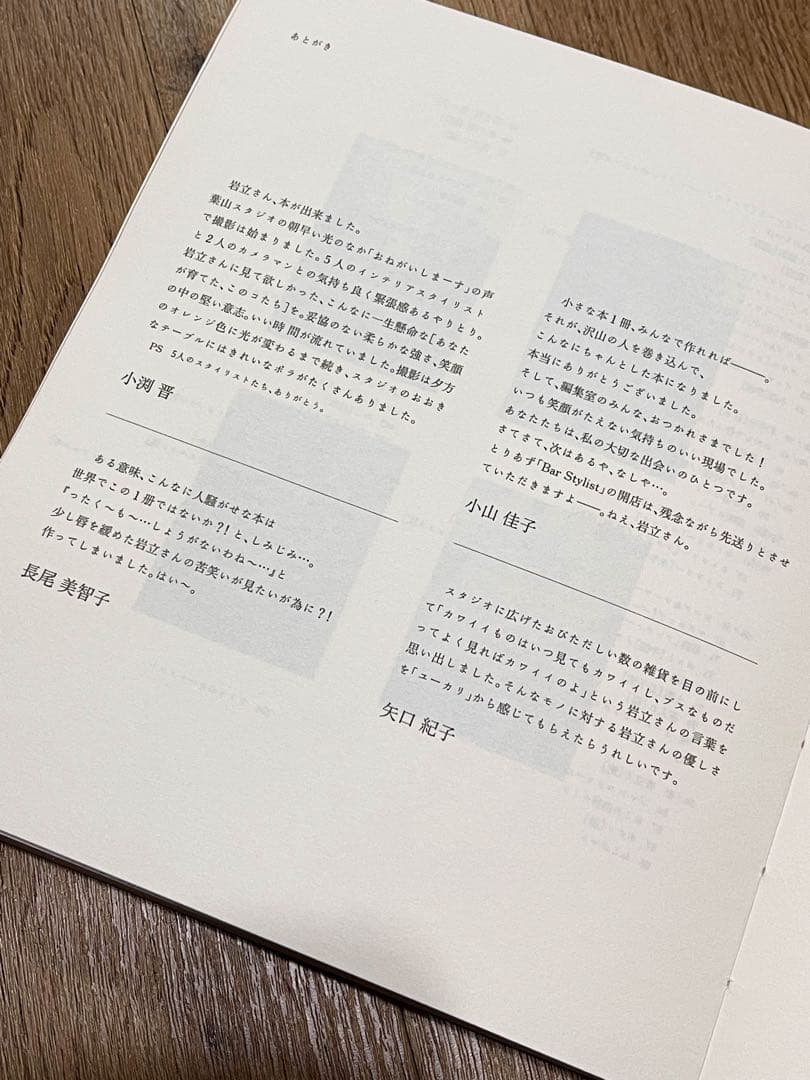 あとがき
岩立さん、本が出来ました。
葉山スタジオの朝早い光のなか「おねがいしまーす」の声
で撮影は始まりました。5人のインテリアスタイリスト
と2人のカメラマンとの気持ち良く緊張感あるやりとり。
岩立さんに見て欲しかった、こんなに一生懸命な[あなた
が育てた、このコたち]を。妥協のない柔らかな強さ、笑顔
の中の堅い意志。いい時間が流れていました。撮影は夕方
のオレンジ色に光が変わるまで続き、スタジオのおおき
なテーブルにはきれいなポラがたくさんありました。
PS 5人のスタイリストたち、ありがとう。
小渕 晋
ある意味、こんなに人騒がせな本は
世界でこの1冊ではないか?! と、しみじみ…。
『ったく〜も〜…しょうがないわね〜…』と
少し唇を緩めた岩立さんの苦笑いが見たいが為に?!
作ってしまいました。はい〜。
長尾 美智子
小さな本1冊、みんなで作れれば——。
それが、沢山の人を巻き込んで、
こんなにちゃんとした本になりました。
本当にありがとうございました。
そして、編集室のみんな、おつかれさまでした!
いつも笑顔がたえない気持ちのいい現場でした。
あなたたちは、私の大切な出会いのひとつです。
さてさて、次はあるや、なしや…。
とりあず「Bar Stylist」の開店は、残念ながら先送りとさせ
ていただきますよ——。ねえ、岩立さん。
小山 佳子
スタジオに広げたおびただしい数の雑貨を目の前にし
て「カワイイものはいつ見てもカワイイし、ブスなものだ
ってよく見ればカワイイのよ」という岩立さんの言葉を
思い出しました。そんなモノに対する岩立さんの優しさ
を「ユーカリ」から感じてもらえたらうれしいです。
矢口 紀子